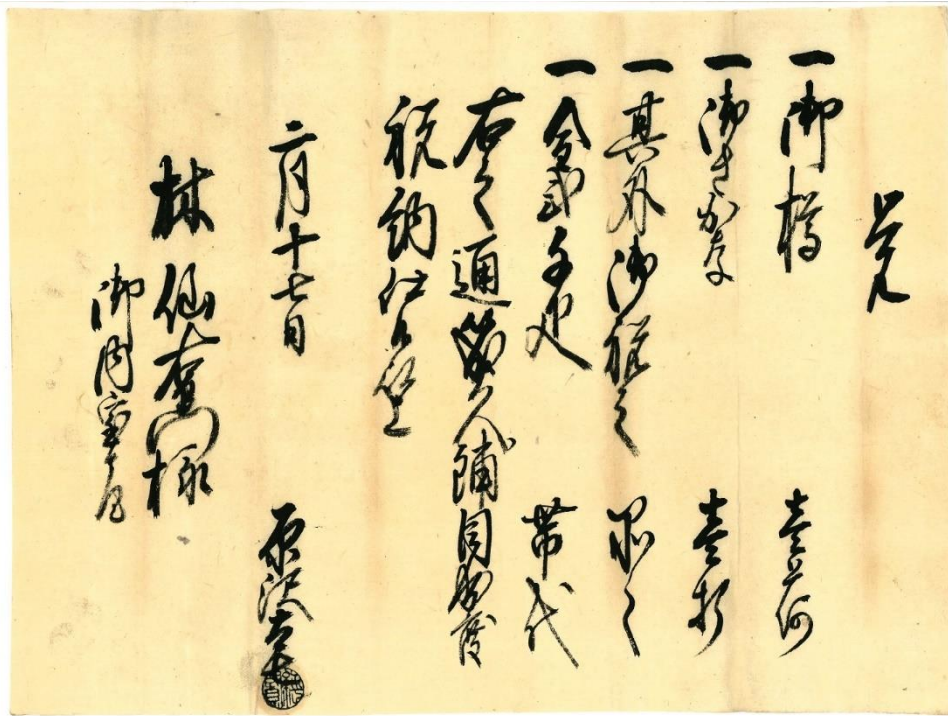 覚
一 御樽 壱荷
一 御さかな 壱折
一 其外御祝之 品々
一 金弐千疋 帯代
右之通幾久鋪目出度
祝納仕候以上
二月十七日
原沢
林仙左衛門様
御内室